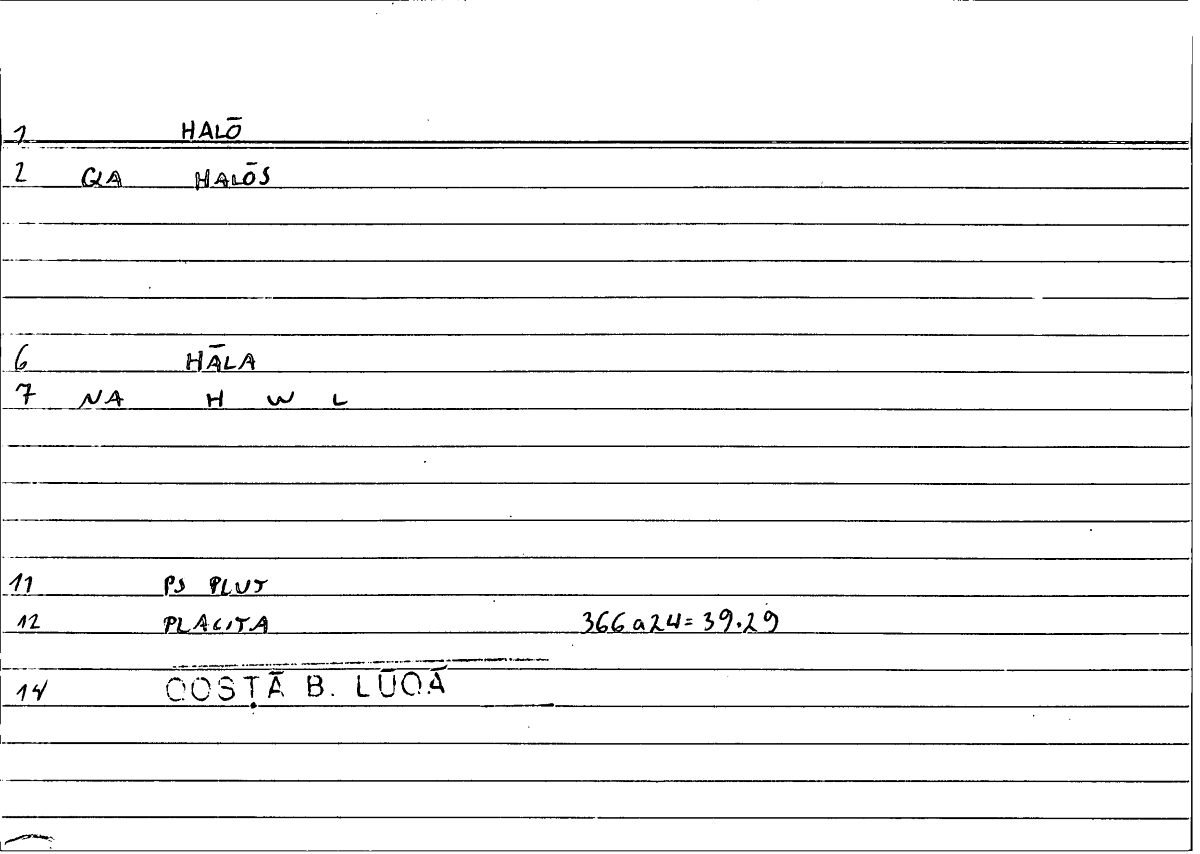 1 HALŌ
2 QA HALŌS
6 HĀLA
7 NA H W L
11 PS PLUT
12 PLACITA 366a24=39.29
14 QOSṬĀ B. LŪQĀ